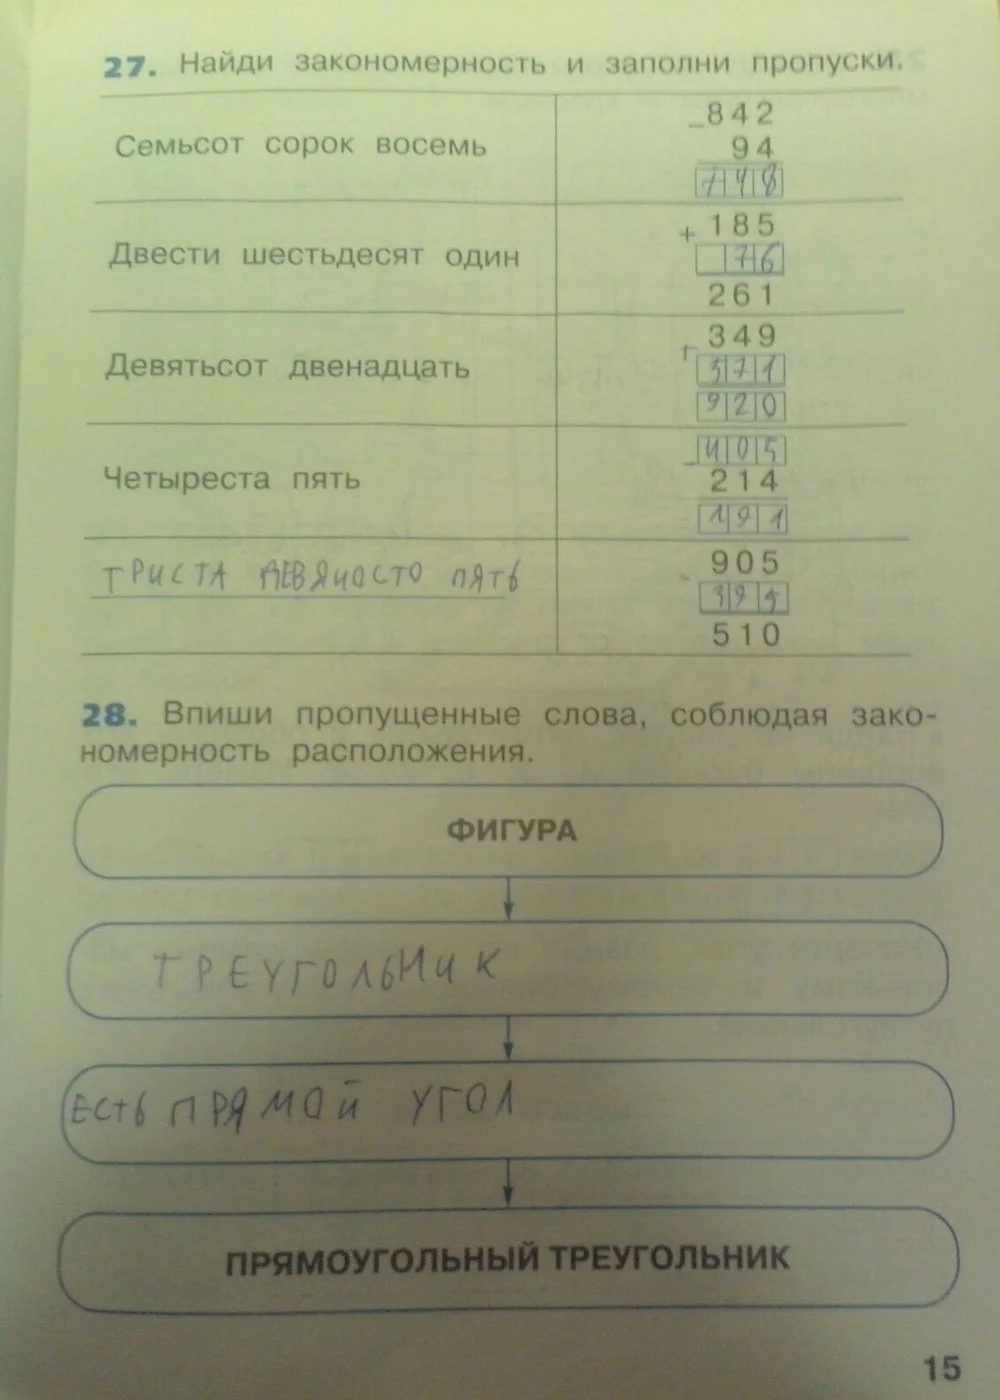 27. Найди закономерность и заполни пропуски.
Семьсот сорок восемь
–842
94
748
Двести шестьдесят один
+185
76
261
Девятьсот двенадцать
+349
571
920
Четыреста пять
–405
214
191
ТРИСТА ДЕВЯНОСТО ПЯТЬ
-905
395
510
28. Впиши пропущенные слова, соблюдая зако-
номерность расположения.
ФИГУРА
ТРЕУГОЛЬНИК
ЕСТЬ ПРЯМОЙ УГОЛ
ПРЯМОУГОЛЬНЫЙ ТРЕУГОЛЬНИК
15